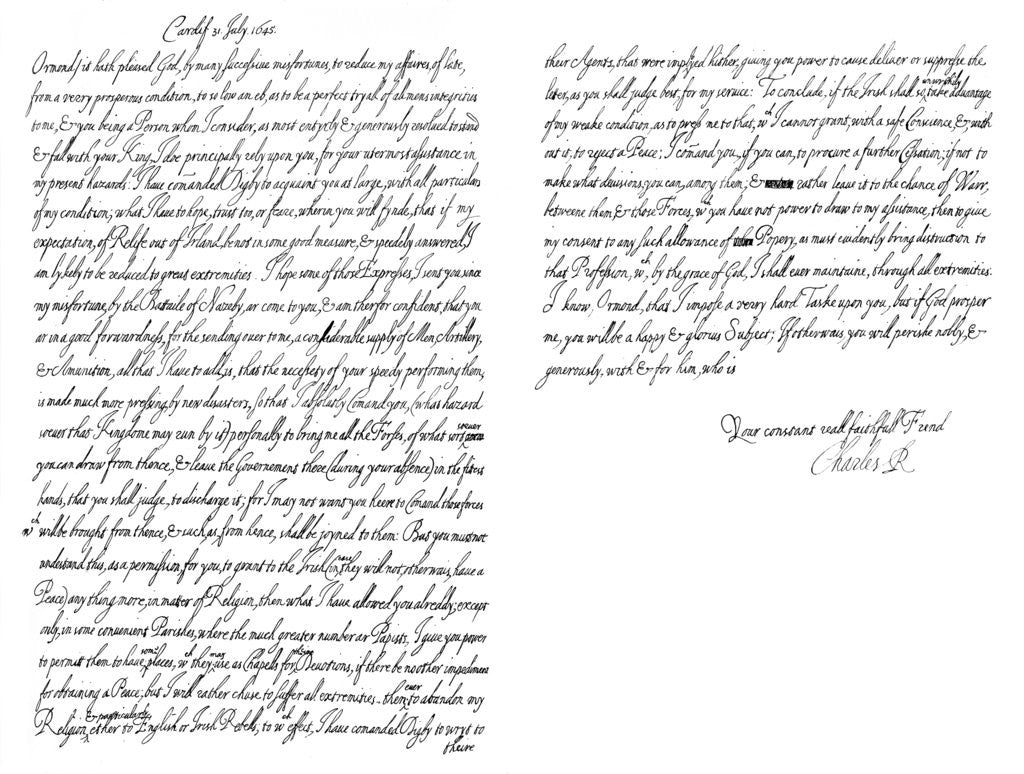 Cardif 31. July. 1645.
Ormond/ it hath pleased God, by many successive misfortunes, to reduce my affaires, of late,
from a verry prosperous condition, to so low an eb, as to be a perfect tryall of all mens integrities
to me, & you being a Person whom I consider, as most entyrly & generously resolved to stand
& fall with your King, I doe principally rely upon you, for your utermost assistance in
my present hazards: I have com̄anded Digby to acquaint you at large, with all particulars
of my condition; what I have to hope, trust too, or feare, wherin you will fynde, that if my
expectation, of Relife out of Irland, be not in some good measure, & speedely answered, I
am lykely to be reduced to great extremities. I hope some of those Expresses, I sent you since
my misfortune, by the Bataile of Nazeby, ar come to you, & am therfor confident, that you
ar in a good forwardness, for the sending over to me, a considerable supply of Men, Artillery,
& Amunition, all that I have to add, is, that the necessety of your speedy performing them,
is made much more pressing, by new disasters, so that I absolutly Comand you, (what hazard
soever that Kingdome may run by it) personally to bring me all the Forses, of what sort soever
you can draw from thence, & leave the Governement there (during your absence) in the fittest
hands, that you shall judge, to discharge it; for I may not want you heere to Comand those forces
wch will be brought from thence, & such as, from hence, shall be joyned to them: But you must not
understand this, as a permission, for you, to grant to the Irish (in case they will not, otherwais, have a
Peace) any thing more, in mater of Religion, then what I have allowed you alreddy; except
only, in some convenient Parishes, where the much greater number ar Papists, I give you power
to permitt them to have some places, wch they may use as Chapells for theire Devotions, if there be no other impediment
for obtaining a Peace; but I will rather chuse to suffer all extremities, then ever to abandon my
Religion, & particularly ether to English or Irish Rebells, to wch effect, I have comanded Digby to wryt to
theire
their Agents, that were imployed hither, giving you power to cause deliver or suppresse the
leter, as you shall judge best, for my service: To conclude, if the Irish shall so unworthily take advantage
of my weake condition, as to press me to that, wch I cannot grant, with a safe Conscience, & with
out it, to reject a Peace; I com̄and you, if you can, to procure a further Cessation; if not to
make what devisions, you can, among them; & rather leave it to the chance of Warr,
betweene them, & those Forces, wch you have not power to draw to my assistance, then to give
my consent to any such allowance of Popery, as must evidently bring distruction to
that Profession, wch, by the grace of God, I shall ever maintaine, through all extremities:
I know, Ormond, that I impose a verry hard Taske upon you, but if God prosper
me, you will be a happy & glorius Subject; If otherwais, you will perishe nobly, &
generously, with & for him, who is
Your constant reall faithfull Frend
Charles R